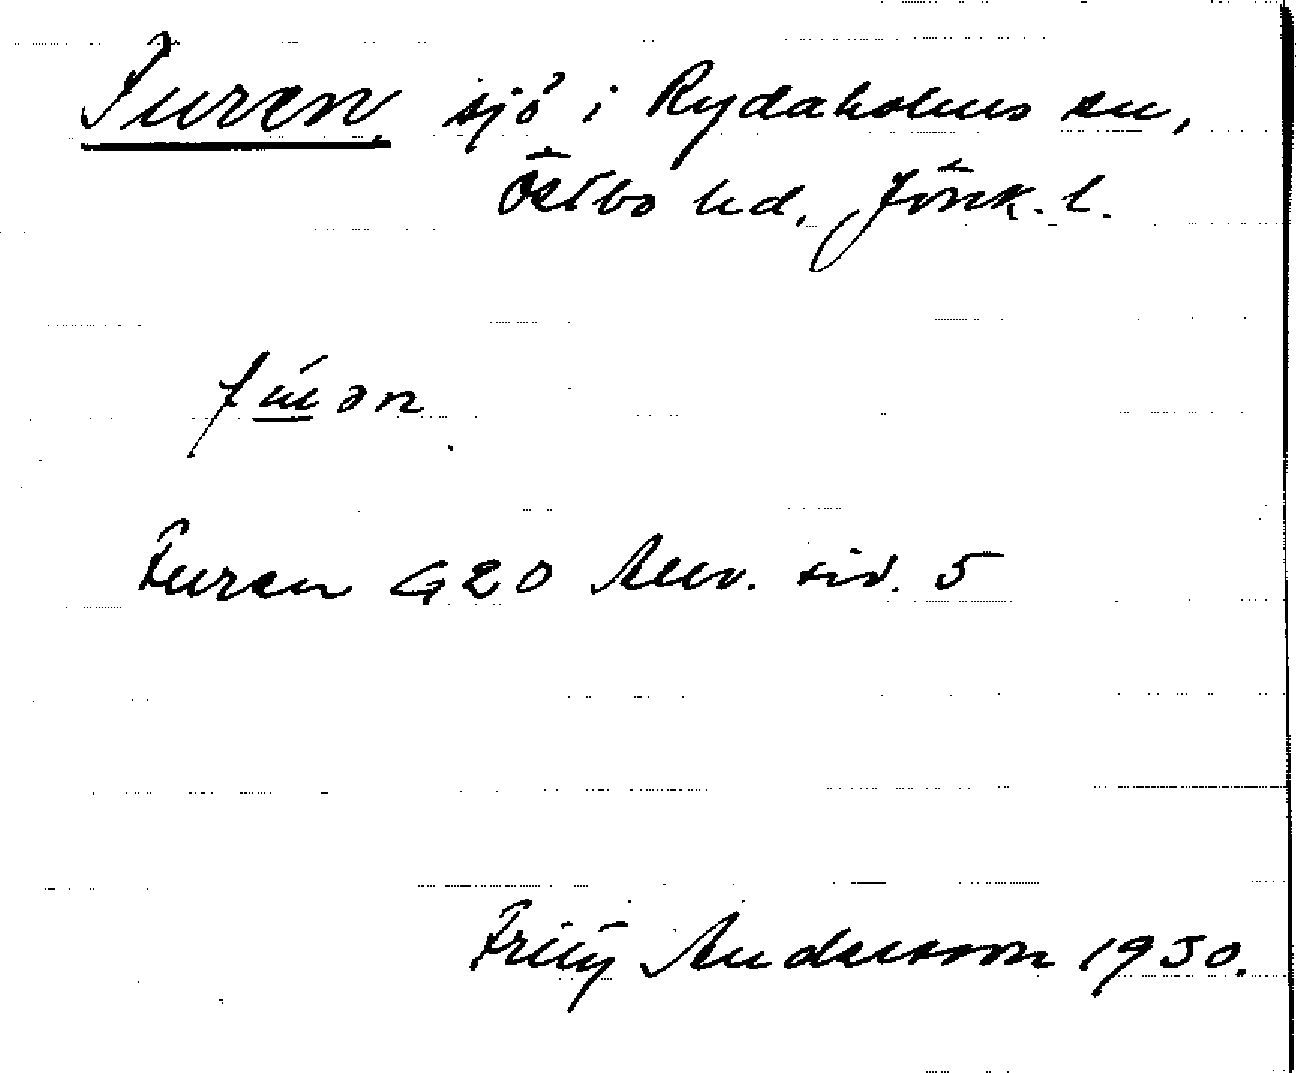 Furen. sjö i Rydaholms sn,
Östbo hd, Jönk. l.
fúən
Furen G20 Anv. sid. 5
Frity Andersson 1930.